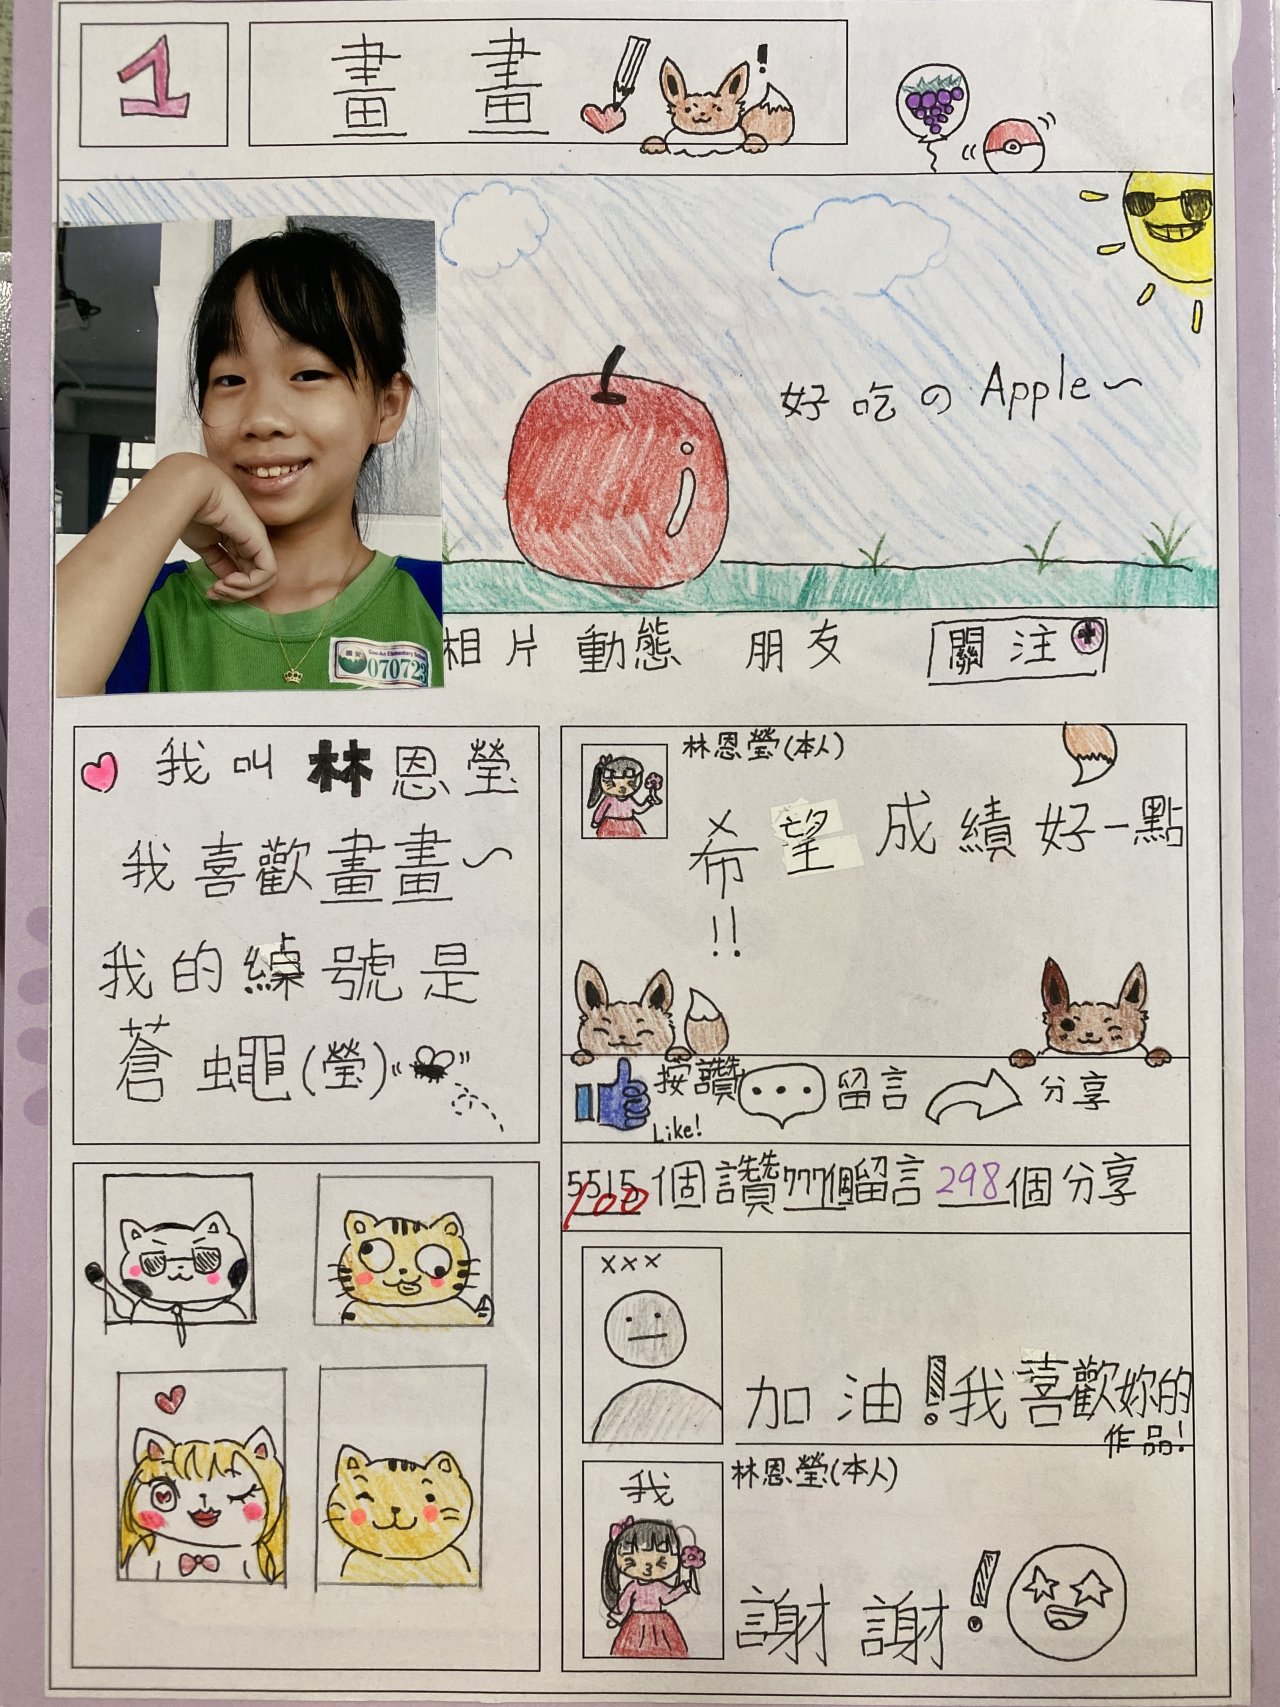 1 畫畫!
好吃のApple~
國安 Guo-An Elementary School
070723
相片 動態 朋友 關注+
我叫林恩瑩
我喜歡畫畫~
我的綽號是
蒼蠅(瑩)
林恩瑩(本人)
希望成績好一點
!!
按讚 留言 分享
Like!
5515個讚777個留言298個分享
100
xxx
加油!我喜歡妳的
作品!
我 林恩瑩(本人)
謝謝!